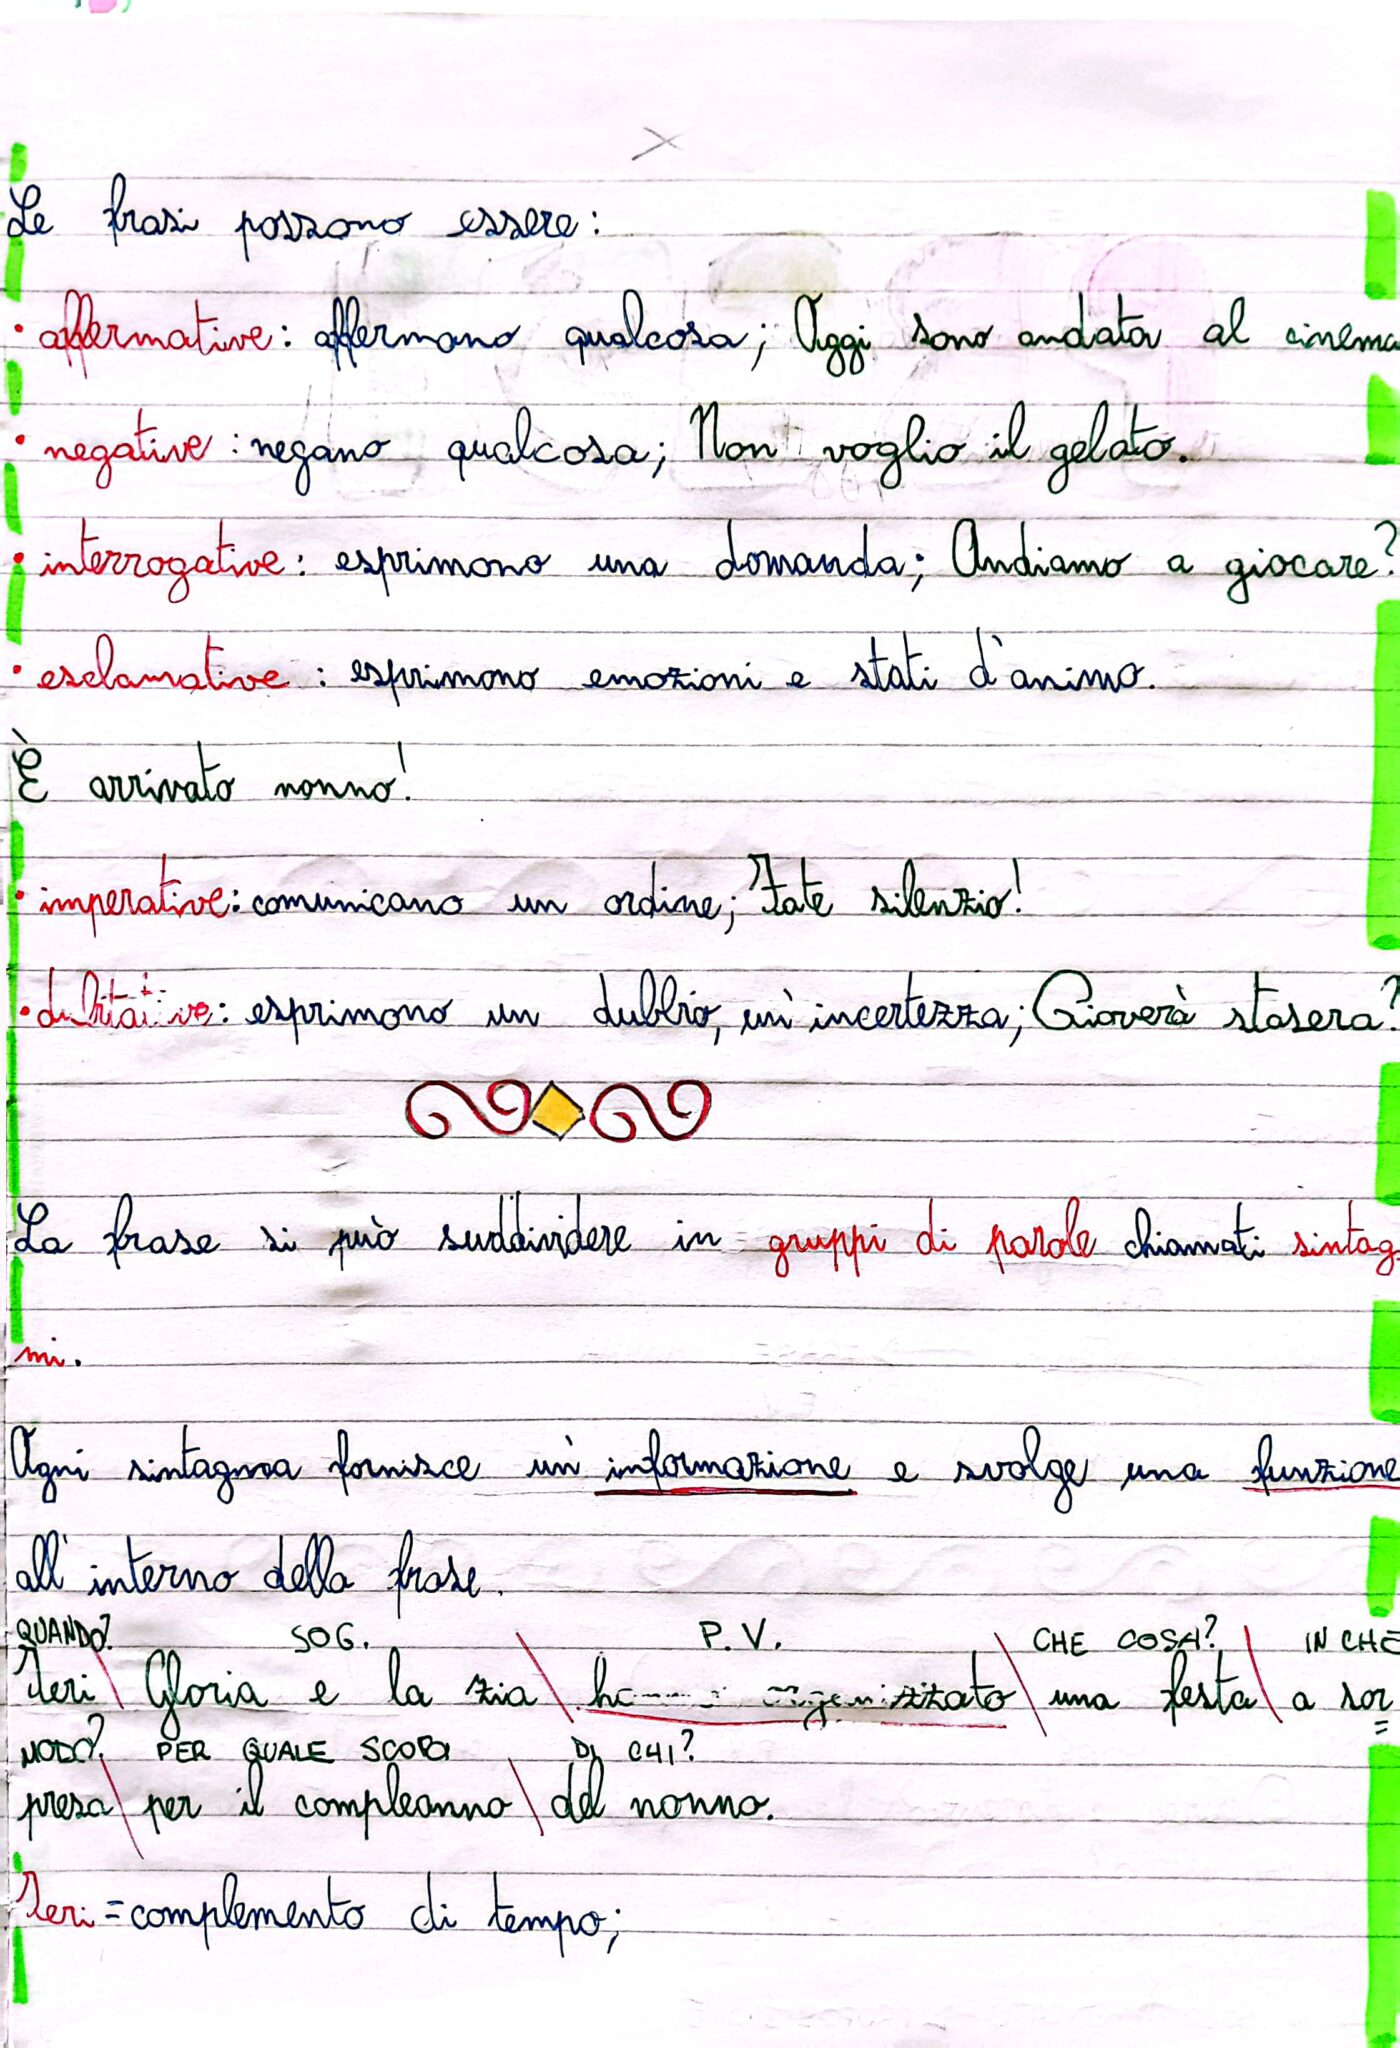 Le frasi possono essere:
• affermative: affermano qualcosa; Oggi sono andata al cinema
• negative: negano qualcosa; Non voglio il gelato.
• interrogative: esprimono una domanda; Andiamo a giocare?
• esclamative: esprimono emozioni e stati d'animo.
È arrivato nonno!
• imperative: comunicano un ordine; Fate silenzio!
• dubitative: esprimono un dubbio, un'incertezza; Pioverà stasera?
La frase si può suddividere in gruppi di parole chiamati sintag-
mi.
Ogni sintagma fornisce un'informazione e svolge una funzione
all'interno della frase.
QUANDO? SOG. P.V. CHE COSA? IN CHE
Ieri \ Gloria e la zia \ hanno organizzato \ una festa \ a sor
MODO? PER QUALE SCOPO DI CHI?
presa \ per il compleanno \ del nonno.
Ieri = complemento di tempo;